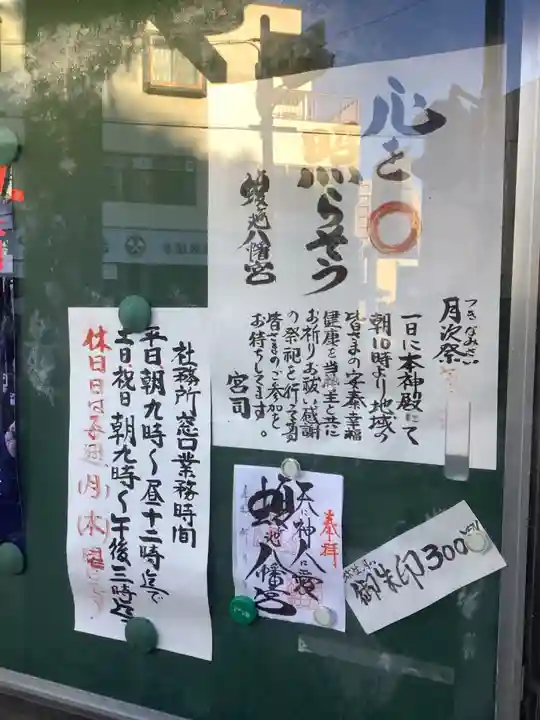 心を
照らそう
蟻池八幡宮
月次祭
つきなみさい
一日に本神殿にて
朝10時より地域の
皆さまの安泰幸福
健康を当熱主と共に
お祈りお祓い感謝
の祭祀を行って
皆さまのご参加を
お待ちしてます。
宮司
社務所窓口業務時間
平日、朝九時〜昼十二時迄で
土日、祝日朝九時〜午後三時迄
休日日は毎週(月)(木)曜
奉拝
天に神 人に愛
池八幡宮
御朱印300